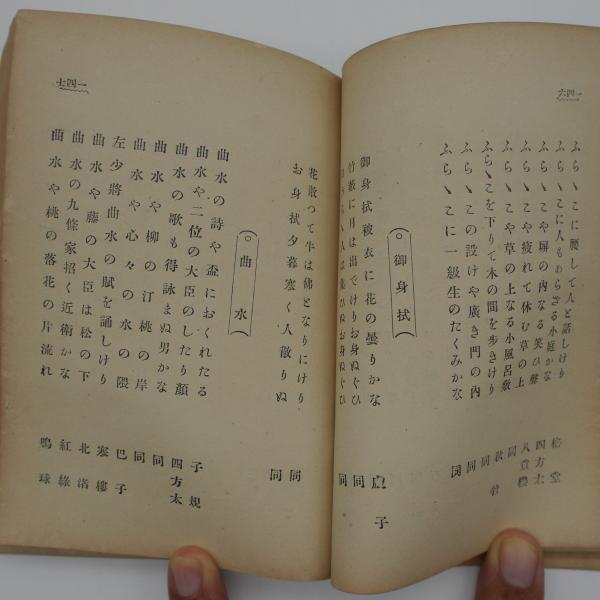 一四六
ふらゝこに腰して人と話しけり
ふらゝこに人もあらざる小庭かな
ふらゝこや塀の內なる笑ひ聲
ふらゝこや疲れて休む草の上
ふらゝこや草の上なる小風呂敷
ふらゝこを下りて木の間を步きけり
ふらゝこの設けや廣き門の內
ふらゝこに一級生のたくみかな
格堂
四方太
八重櫻
同
同
同
同
(○御身拭)
御身拭被衣に花の曇りかな
竹藪に月は出でけりお身ぬぐひ
人は集ひぬお身ぬぐひ
虛子
同
同
一四七
お身拭夕暮寒く人散りぬ
花散つて牛は佛となりにけり
同
同
(○曲水)
曲水の詩や盃におくれたる
曲水や二位の大臣のしたり顏
曲水の歌も得詠まぬ男かな
曲水や柳の汀桃の岸
曲水や心々の水の隈
左少將曲水の賦を誦しけり
曲水や藤の大臣は松の下
曲水の九條家招く近衞かな
曲水や桃の落花の片流れ
子規
四方太
同
同
巴子
寒樓
北渚
紅綠
鳴球